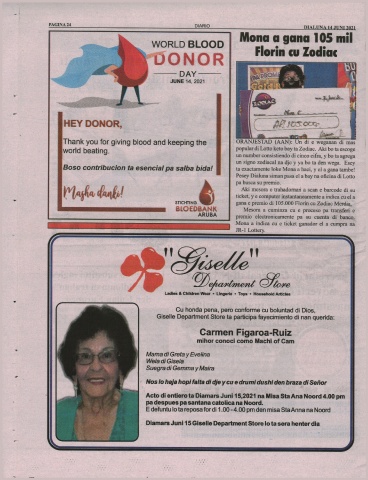 PAGINA 24
DIARIO
DIALUNA 14 JUNI 2021
WORLD BLOOD
DONOR
DAY
JUNE 14, 2021
HEY DONOR,
Thank you for giving blood and keeping the
world beating.
Boso contribucion ta esencial pa salba bida!
Masha danki!
STICHTING
BLOEDBANK
ARUBA
Mona a gana 105 mil
Florin cu Zodiac
ZODIAC
105.000
ORANJESTAD (AAN): Un di e weganan di mas
popular di Lotto keto bay ta Zodiac. Aki bo ta escoge
un number consistiendo di cinco cifra, y bo ta agrega
un signo zodiacal na dje y ya bo ta den wega. Esey
ta exactamente loke Mona a haci, y el a gana tambe!
Pesey Diahuna siman pasa el a bay na oficina di Lotto
pa busca su premio.
Aki mesora e trahadornan a scan e barcode di su
ticket, y e computer instantaneamente a indica cu el a
gana e premio di 105.000 Florin cu Zodiac Mernha.
Mesora a cuminsa cu e proceso pa transferi e
premio electronicamente pa su cuenta di banco.
Mona a indica cu e ticket ganador el a cumpra na
JR-1 Lottery.
"Giselle"
Department Store
Ladies & Children Wear • Lingerie • Toys • Household Articles
Cu honda pena, pero conforme cu boluntad di Dios,
Giselle Department Store ta participa fayecimiento di nan querida:
Carmen Figaroa-Ruiz
mihor conoci como Machi of Cam
Mama di Greta y Evelino
Wela di Gisela
Suegra di Gemma y Maira
Nos lo haja hopi falta di dje y cu e drumi dushi den braza di Señor
Acto di entiero ta Diamars Juni 15,2021 na Misa Sta Ana Noord 4.00 pm
pa despues pa santana catolica na Noord.
E defuntu lo ta reposa for di 1.00 -4.00 pm den misa Sta Anna na Noord
Diamars Juni 15 Giselle Department Store lo ta sera henter dia